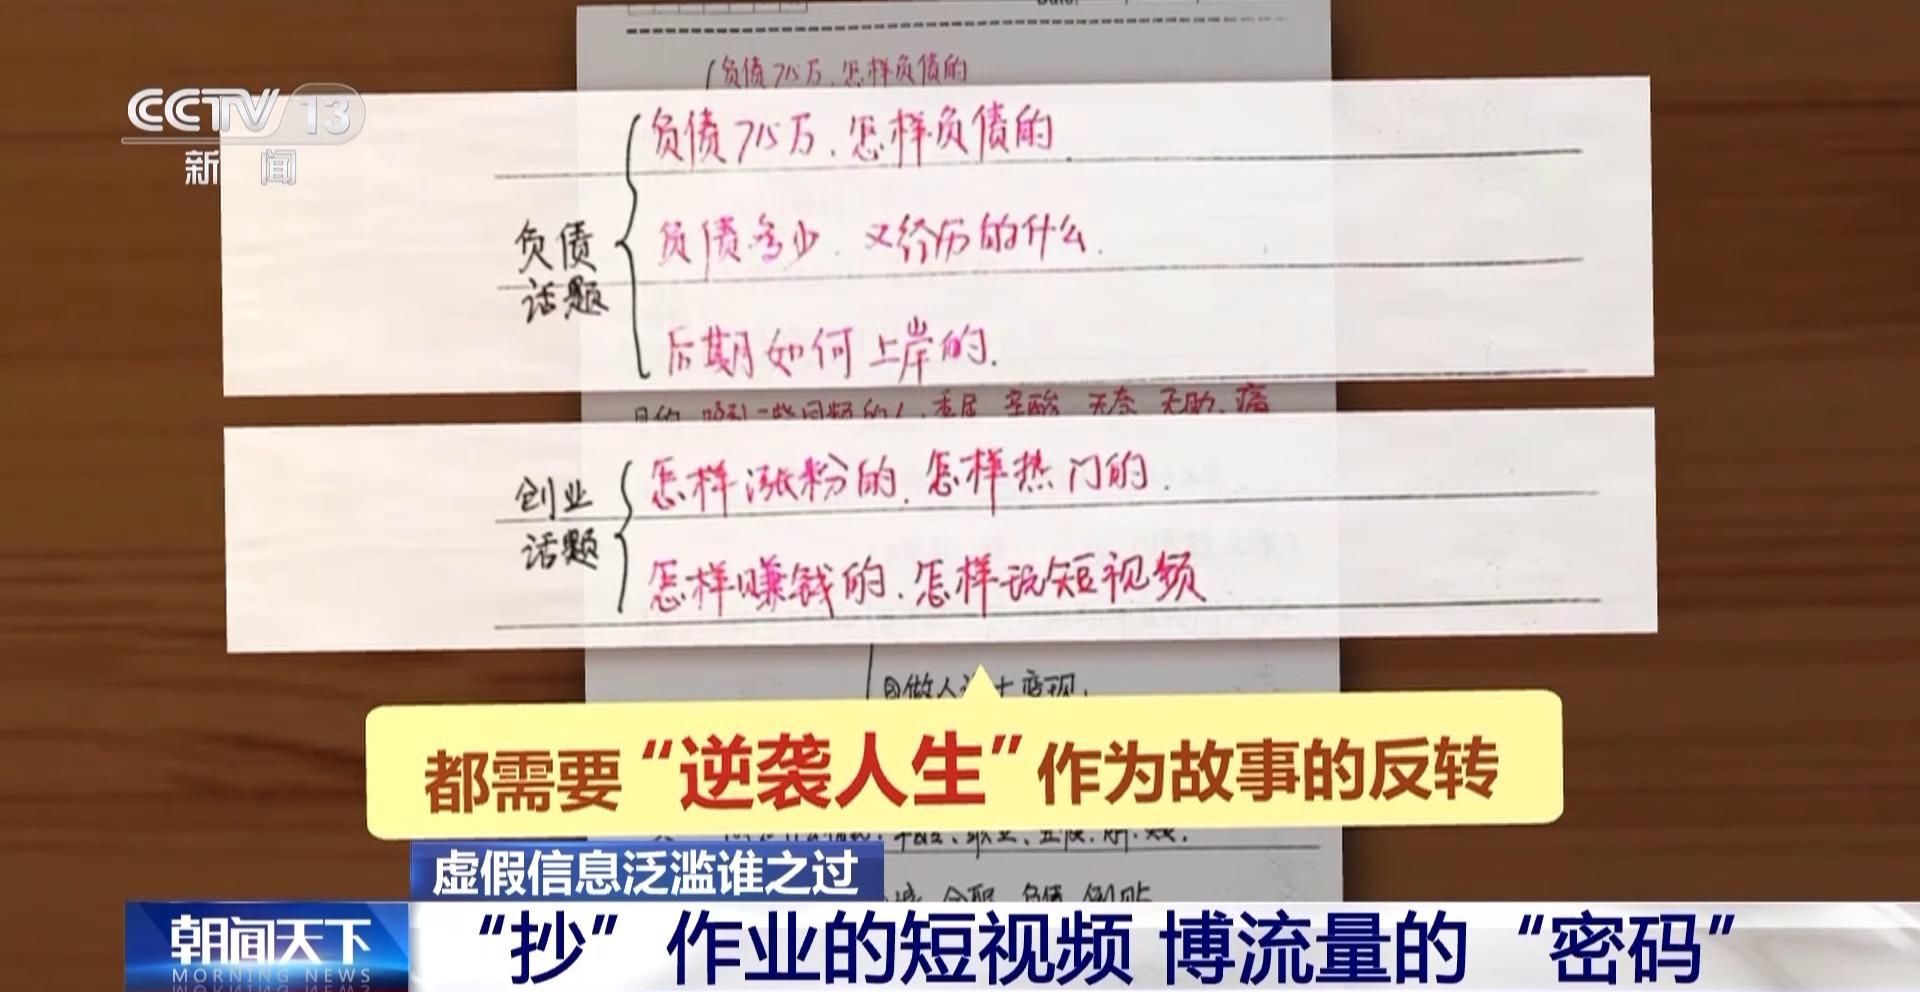 Date:
负债715万、怎样负债的
CCTV 13
新闻
负债715万、怎样负债的
负债话题
负债多少、又经历的什么.
后期如何上岸的.
创业话题
怎样涨粉的、怎样热门的.
怎样赚钱的、怎样玩短视频
都需要“逆袭人生”作为故事的反转
虚假信息泛滥谁之过
朝闻天下
MORNING NEWS
“抄”作业的短视频 博流量的“密码”